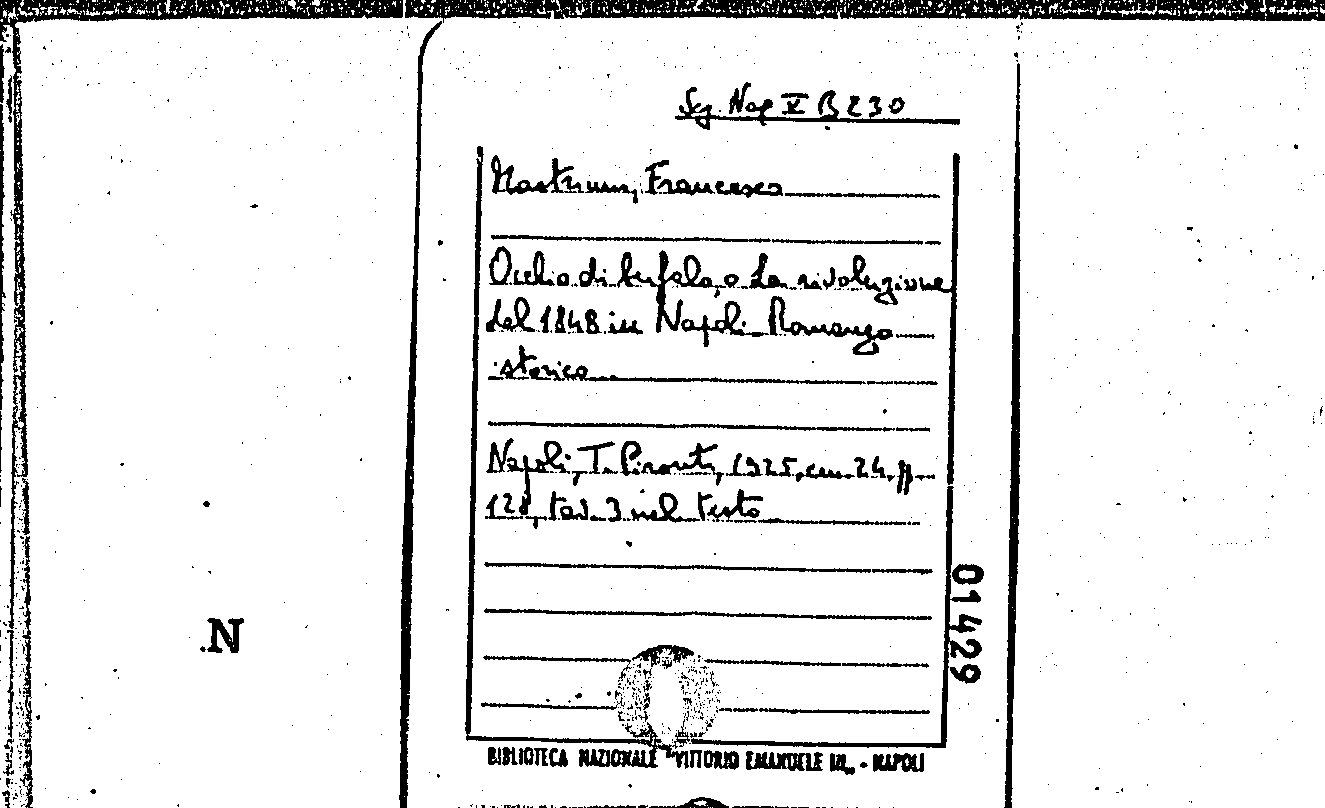 Sez. Nap V B 230
Mastriani, Francesco
Occhio di bufalo, o La rivoluzione
del 1848 in Napoli. Romanzo
storico
Napoli, T. Pironti, 1925, cm. 24, pp.
128, tav. 3 nel testo
01429
.N
BIBLIOTECA NAZIONALE "VITTORIO EMANUELE III„ - NAPOLI